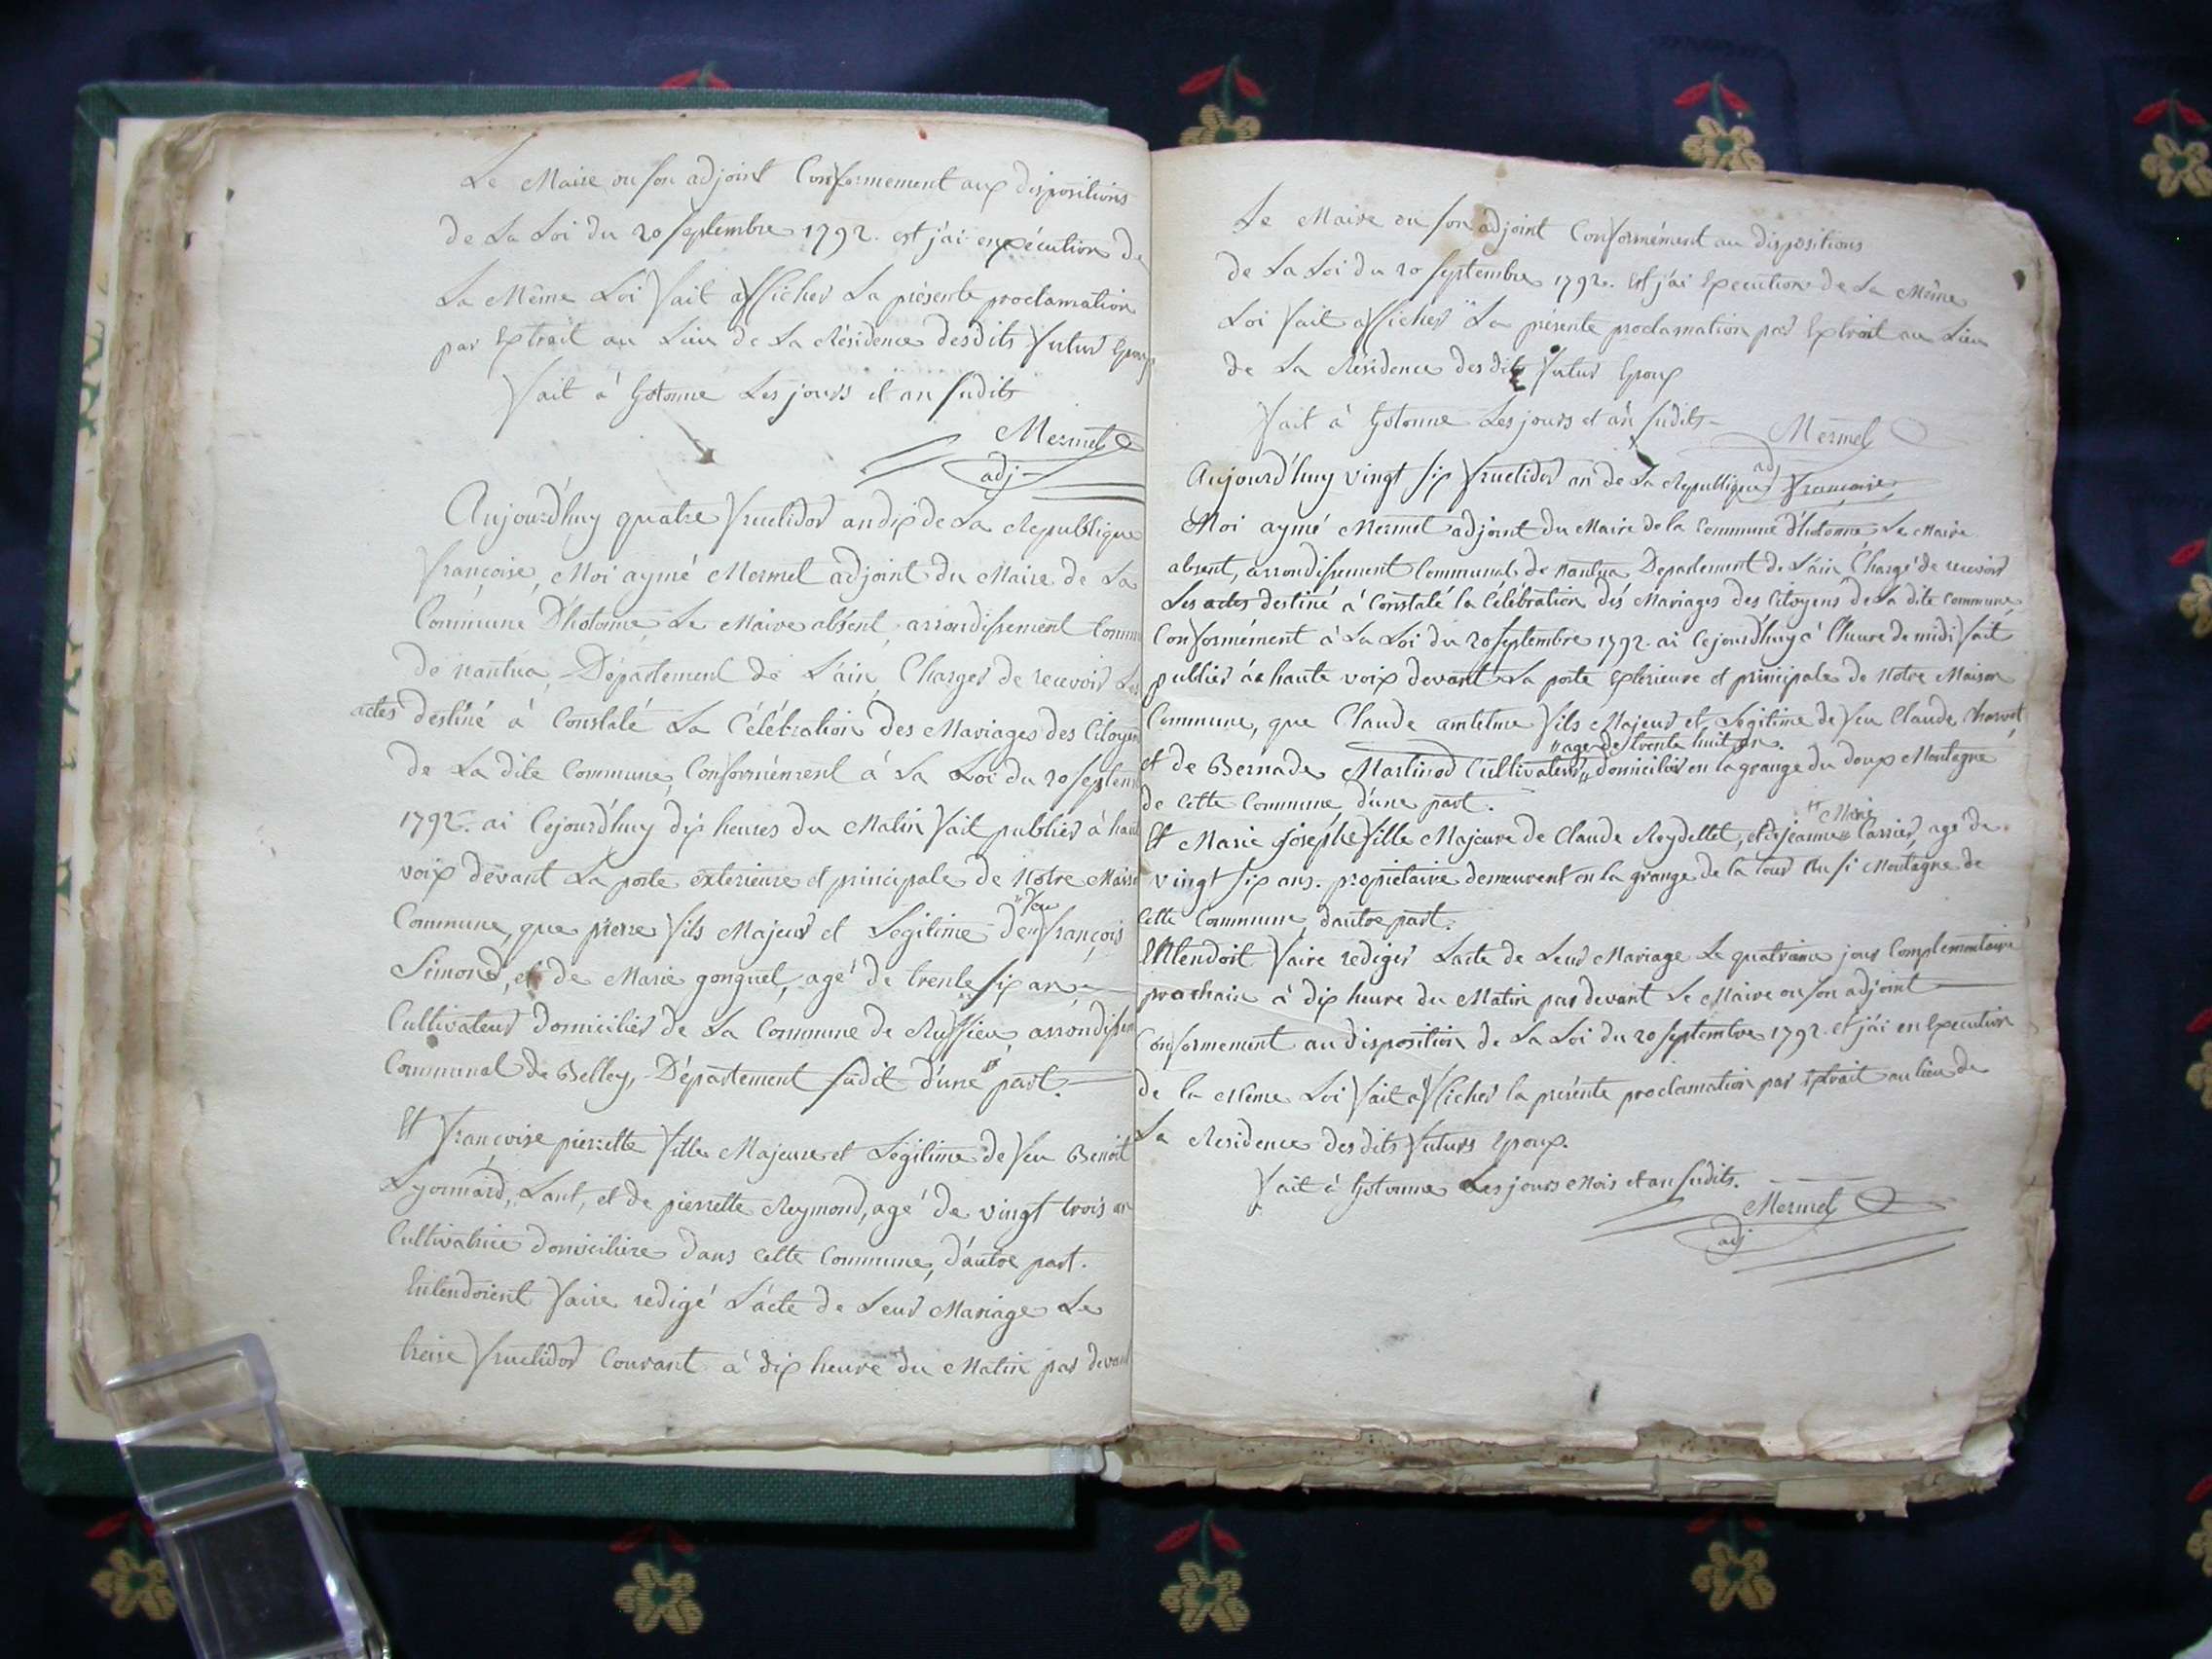 Le Maire ou son adjoint Conformement aux dispositions
de La Loi du 20 septembre 1792. est j'ai enexécution de
La Même Loi fait afficher La présente proclamation
par Extrait au Lieu de La Résidence desdits futur Epoux
fait à hotonne Les jours et an sudits
Mermet
adj
Aujourd'huy quatre fructidor an dix de La Republique
françoise, Moi aymé Mermet adjoint du Maire de La
Commune D'hotonne, Le Maire absent, arrondissement Commu
de Nantua, Département de L'ain, Charger de recevoir Les
actes destiné à Constaté La Célébration des Mariages des Citoyen
de La dite Commune, Conformément à La Loi du 20 septem
1792. ai Cejourd'huy dix heures du Matin fait publier à haut
voix devant La porte exterieure et principale de Notre Maiso
feu
Commune, que pierre fils Majeur et Legitime de françois
Simond, et de Marie gonguet, agé de trente six an
Cultivateur domicilier de La Commune de Ruffieu, arrondissem
Communal de Belley, Département sudit d'une part.
Et françoise pierrette fille Majeure et Légitime de feu Benoit
Lyonnard, Lant, et de pierrette Reymond, agé de vingt trois an
Cultivatrice domiciliere dans cette Commune, d'autre part.
Entendoient faire redigé L'acte de Leur Mariage Le
treise fructidor Courant à dix heure du Matin par devant
Le Maire ou son adjoint Conformément au dispositions
de La Loi du 20 septembre 1792. Est j'ai Execution de La Même
Loi fait afficher La présente proclamation par Extrait au Lieu
de La Résidence des dits futur Epoux
fait à hotonne Les jours et an sudits
Mermet
adj
Aujourd'huy vingt six fructidor an de La Republique françoise,
Moi aymé Mermet adjoint du Maire de la Commune d'hotonne Le Maire
absent, arrondissement Communal de Nantua Departement de L'ain Chargé de recevoir
Les actes destiné à Constaté la Célébration dés Mariages des Citoyens de La dite Commune,
Conformément à La Loi du 20 septembre 1792. ai Cejourd'huy à l'heure de midi fait
publier à haute voix devant La porte Exterieure et principale de Notre Maison
Commune, que Claude antelme fils Majeur et Legitime de feu Claude Charvet,
"age de trente huit an.
et de Bernade Martinod Cultivateur" domicilier en la grange du doux Montagne
de cette Commune d'une part.
" Marie
Et Marie josephe fille Majeure de Claude Reydellet, et de jeanne" Carrier, age de
vingt six ans. propietaire demeurent en la grange de la tour Au si Montagne de
cette Commune, d'autre part.
Entendoit faire rediger L'acte de Leur Mariage Le quatrième jour Complementaire
prochain à dix heure du Matin par devant Le Maire ou son adjoint
Conformement au disposition de La Loi du 20 septembre 1792. et j'ai en Execution
de la Même Loi fait afficher la présente proclamation par Extrait au lieu de
La Residence des dits futurs Epoux.
fait à hotonne Les jours Mois et an sudits.
Mermet
adj